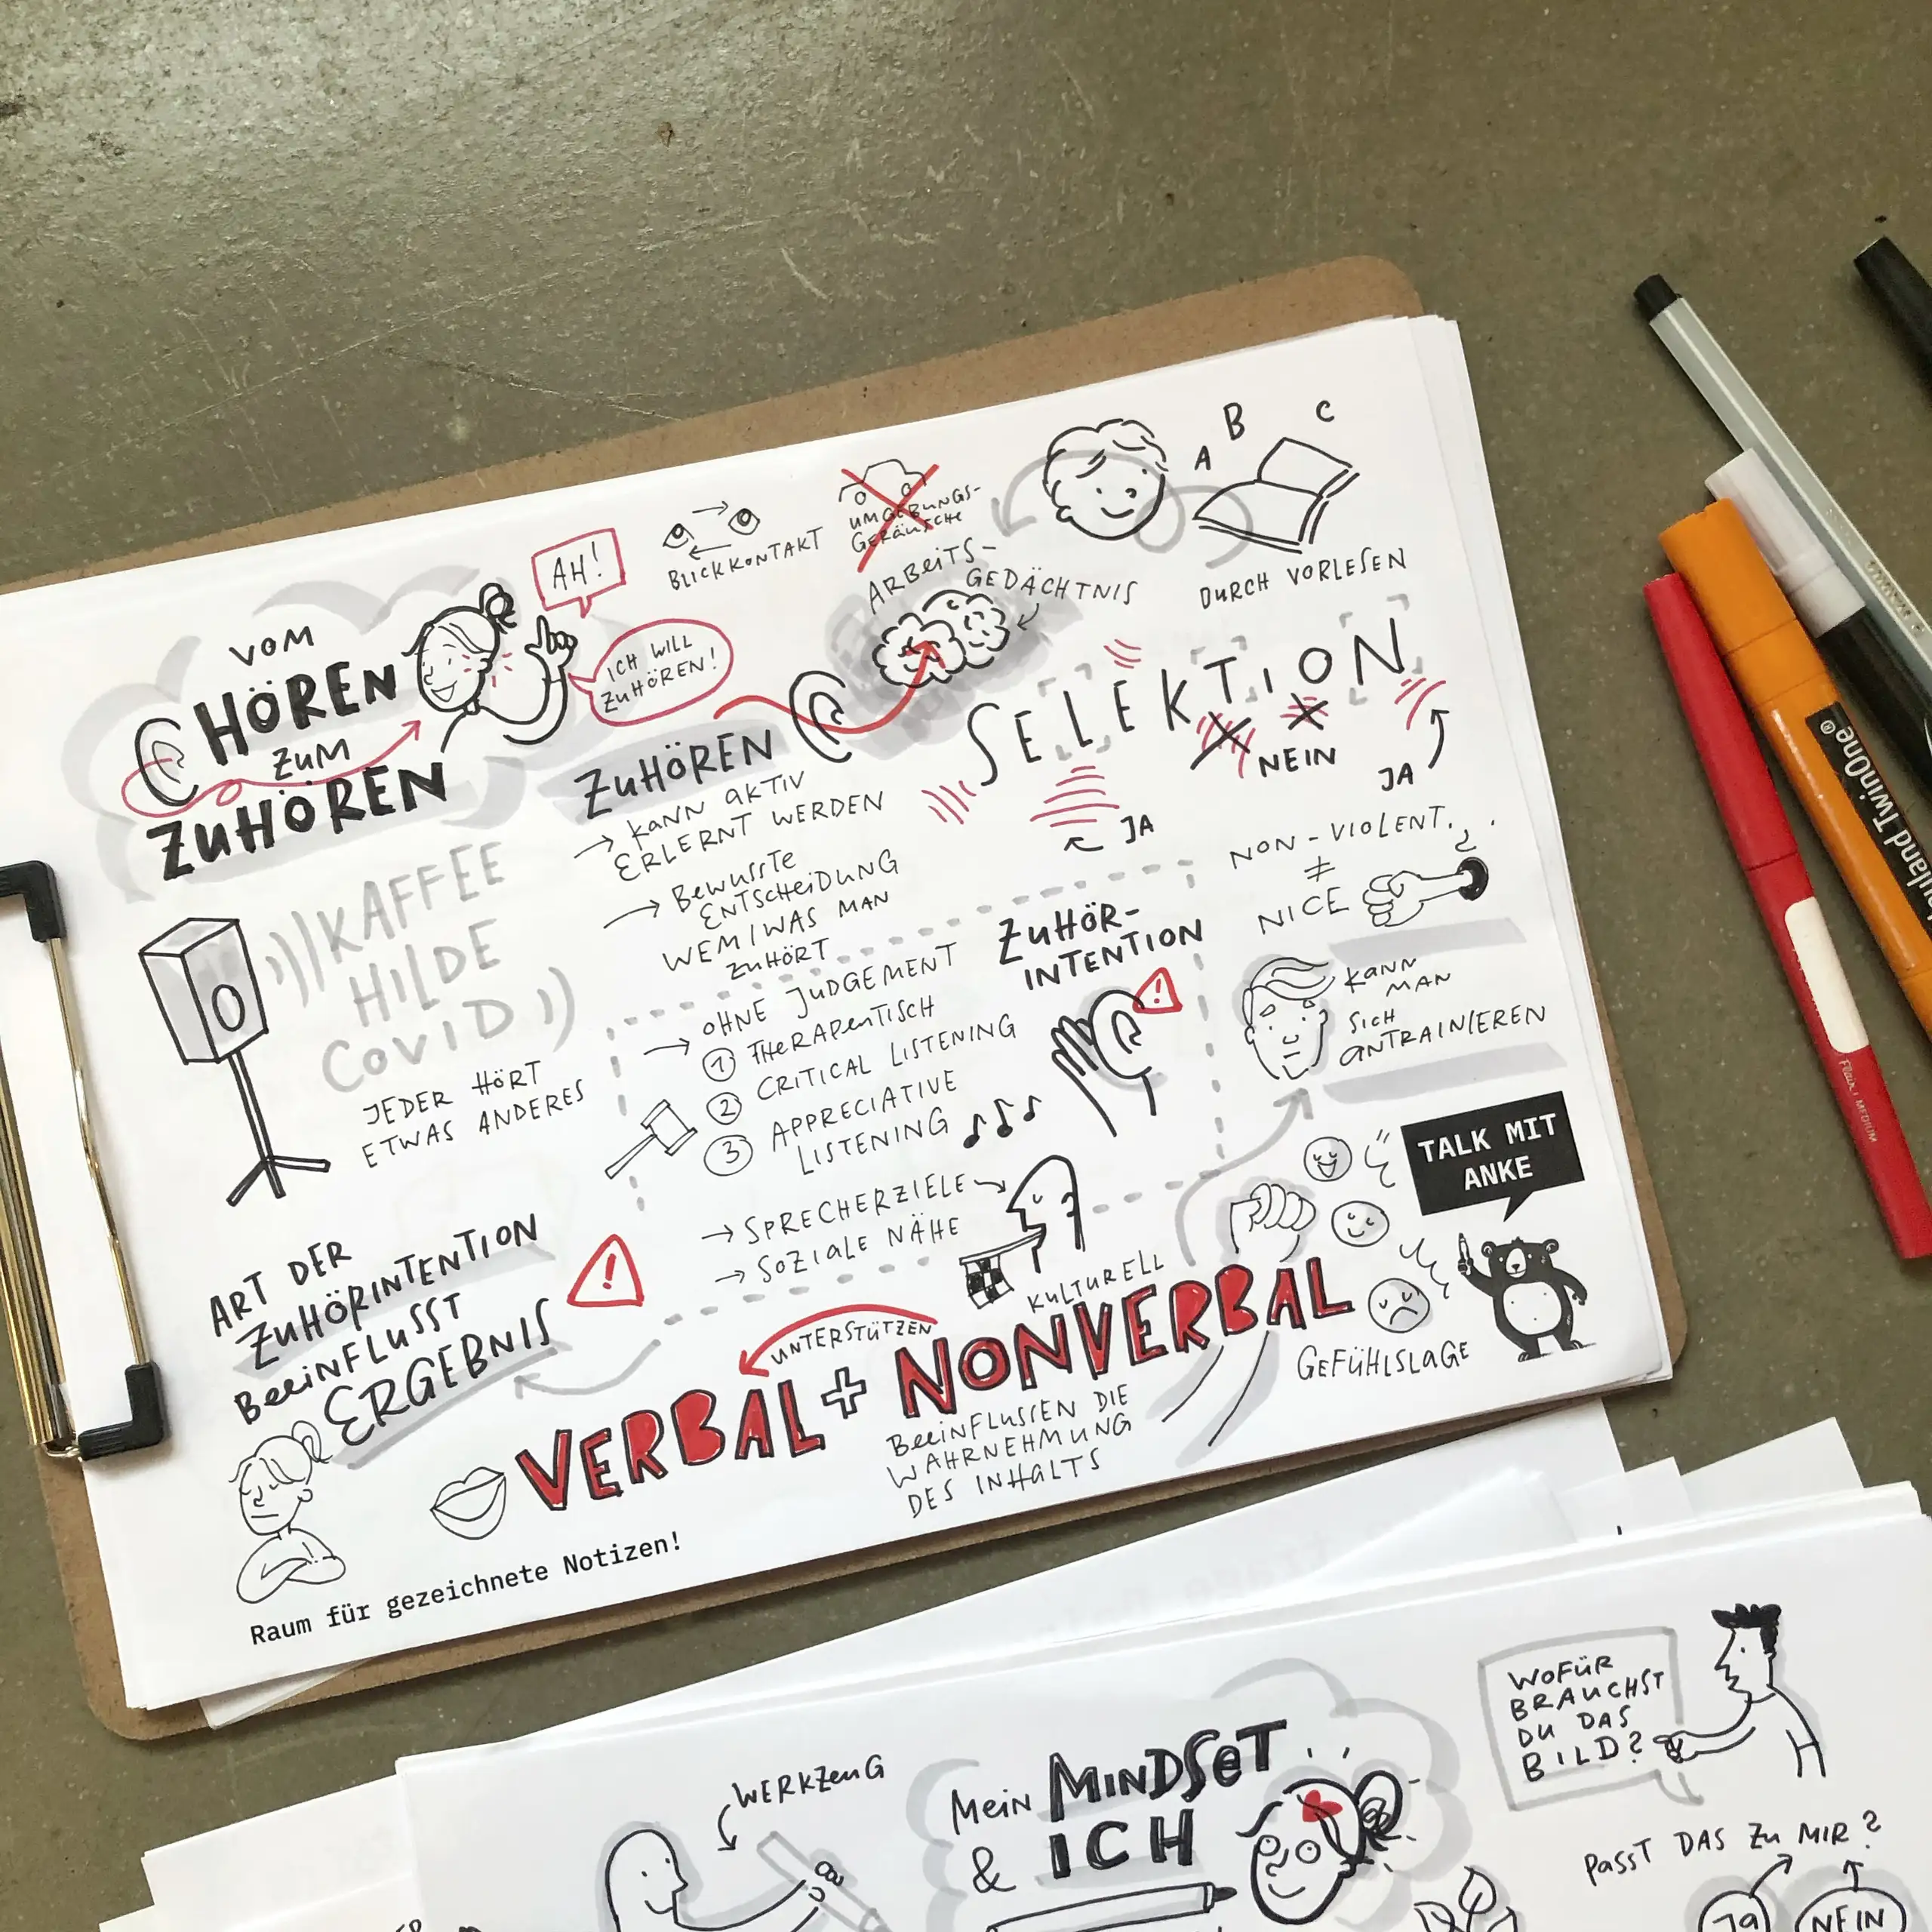 VOM
HÖREN
ZUM
ZUHÖREN
AH!
ICH WILL
ZUHÖREN!
BLICKKONTAKT
UMGEBUNGS-
GERÄUSCHE
ARBEITS-
GEDÄCHTNIS
A B C
DURCH VORLESEN
SELEKTION
NEIN
JA
JA
ZUHÖREN
→ KANN AKTIV
ERLERNT WERDEN
→ BEWUSSTE
ENTSCHEIDUNG
WEM/WAS MAN
ZUHÖRT
KAFFEE
HILDE
COVID
JEDER HÖRT
ETWAS ANDERES
ZUHÖR-
INTENTION
→ OHNE JUDGEMENT
① THERAPEUTISCH
② CRITICAL LISTENING
③ APPRECIATIVE
LISTENING
→ SPRECHERZIELE
→ SOZIALE NÄHE
NON-VIOLENT
≠
NICE
KANN
MAN
SICH
ANTRAINIEREN
TALK MIT
ANKE
ART DER
ZUHÖRINTENTION
BEEINFLUSST
ERGEBNIS
KULTURELL
UNTERSTÜTZEN
VERBAL + NONVERBAL
BEEINFLUSSEN DIE
WAHRNEHMUNG
DES INHALTS
GEFÜHLSLAGE
Raum für gezeichnete Notizen!
WERKZEUG
MEIN MINDSET
& ICH
WOFÜR
BRAUCHST
DU DAS
BILD?
PASST DAS ZU MIR?
JA
NEIN
TwinOne®
Flair MEDIUM